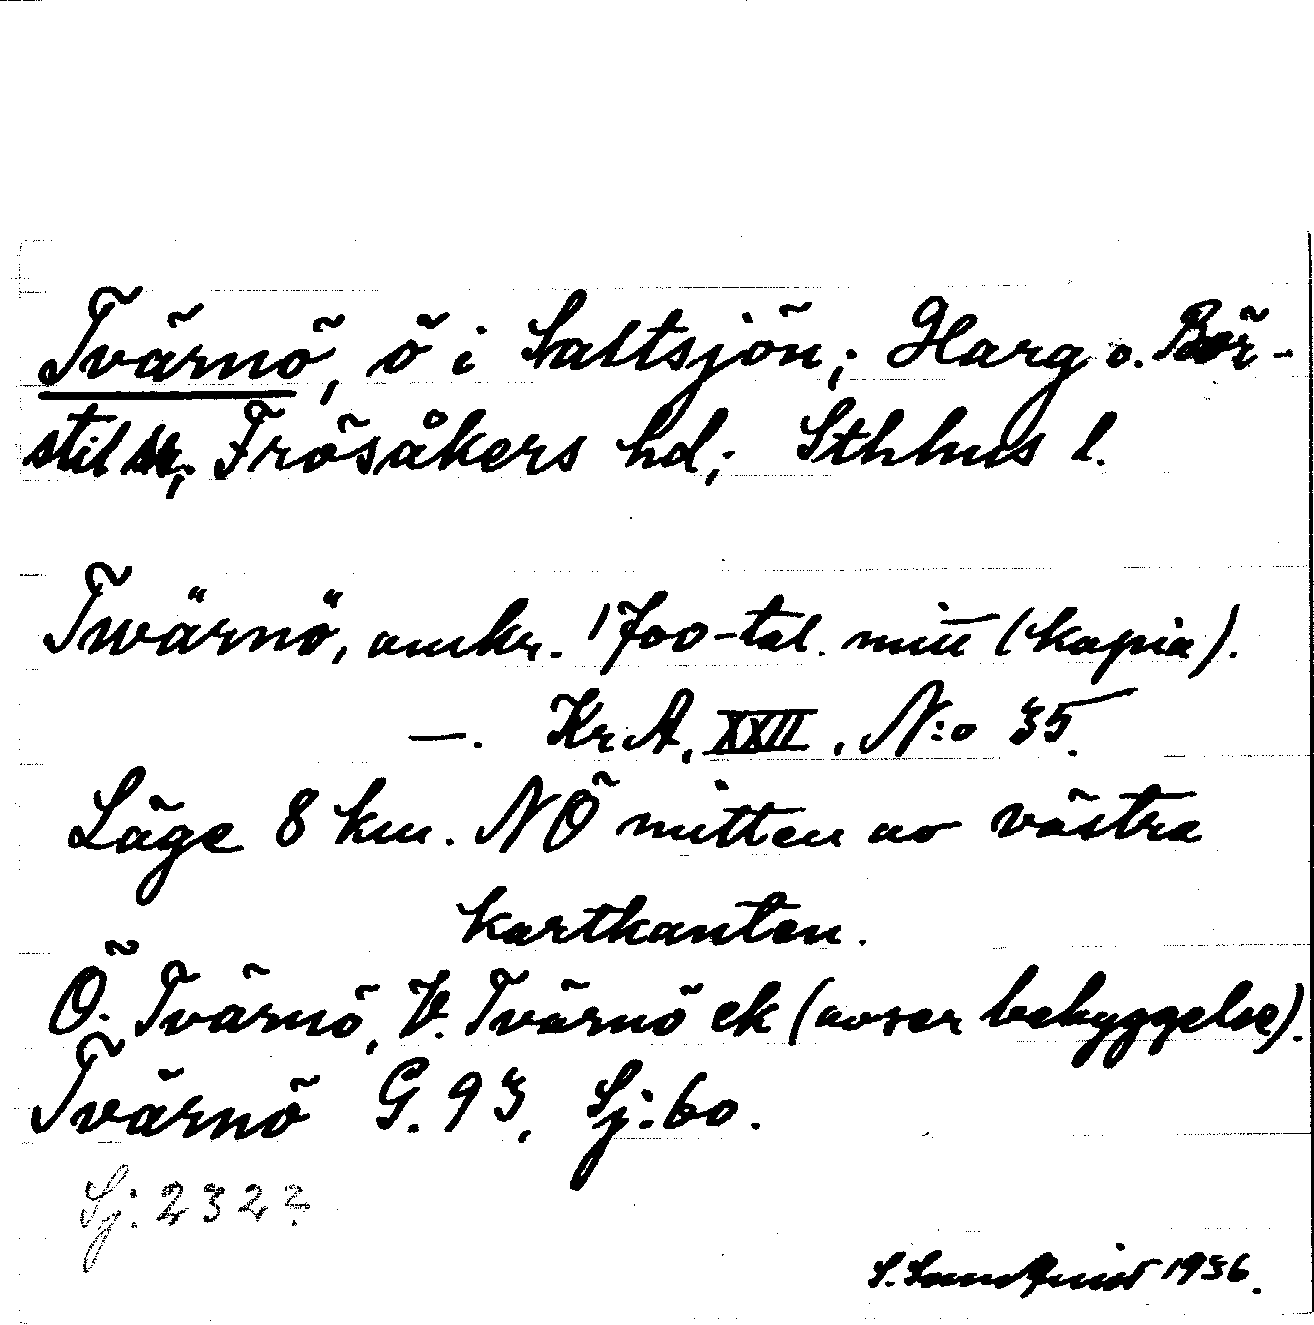 Tvärnö, ö i Saltsjön; Harg o. Bör-
stil sk; Frösåkers hd; Sthlms l.
Twärnö, omkr. 1700-tal. mitt (kopia).
—. Kr.A, XXII, N:o 35.
Läge 8 km. NÖ mitten av västra
kartkanten.
Ö. Tvärnö, V. Tvärnö ek (avser bebyggelse).
Tvärnö G. 93, Sj: 60.
Sj: 232
S. 1936.